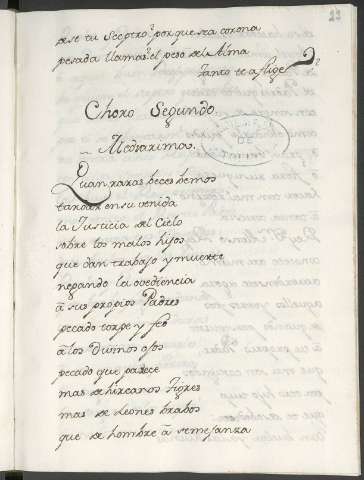 23
de se tu Sceptro? porque sea corona
pesada llamas? el peso del Alma
tanto te aflige?
Choro Segundo
Alcdiarimos.
Quan raras beces bemos
tardar en su venida
la Justicia del Cielo
sobre los malos hijos
que dan trabajo y muerte
negando la ovediencia
â sus propios Padres
pecado torpe y feo
â los Divinos ojos
pecado que parece
mas de hircanos Tigres
mas de leones brabos
que de hombre â semejanza